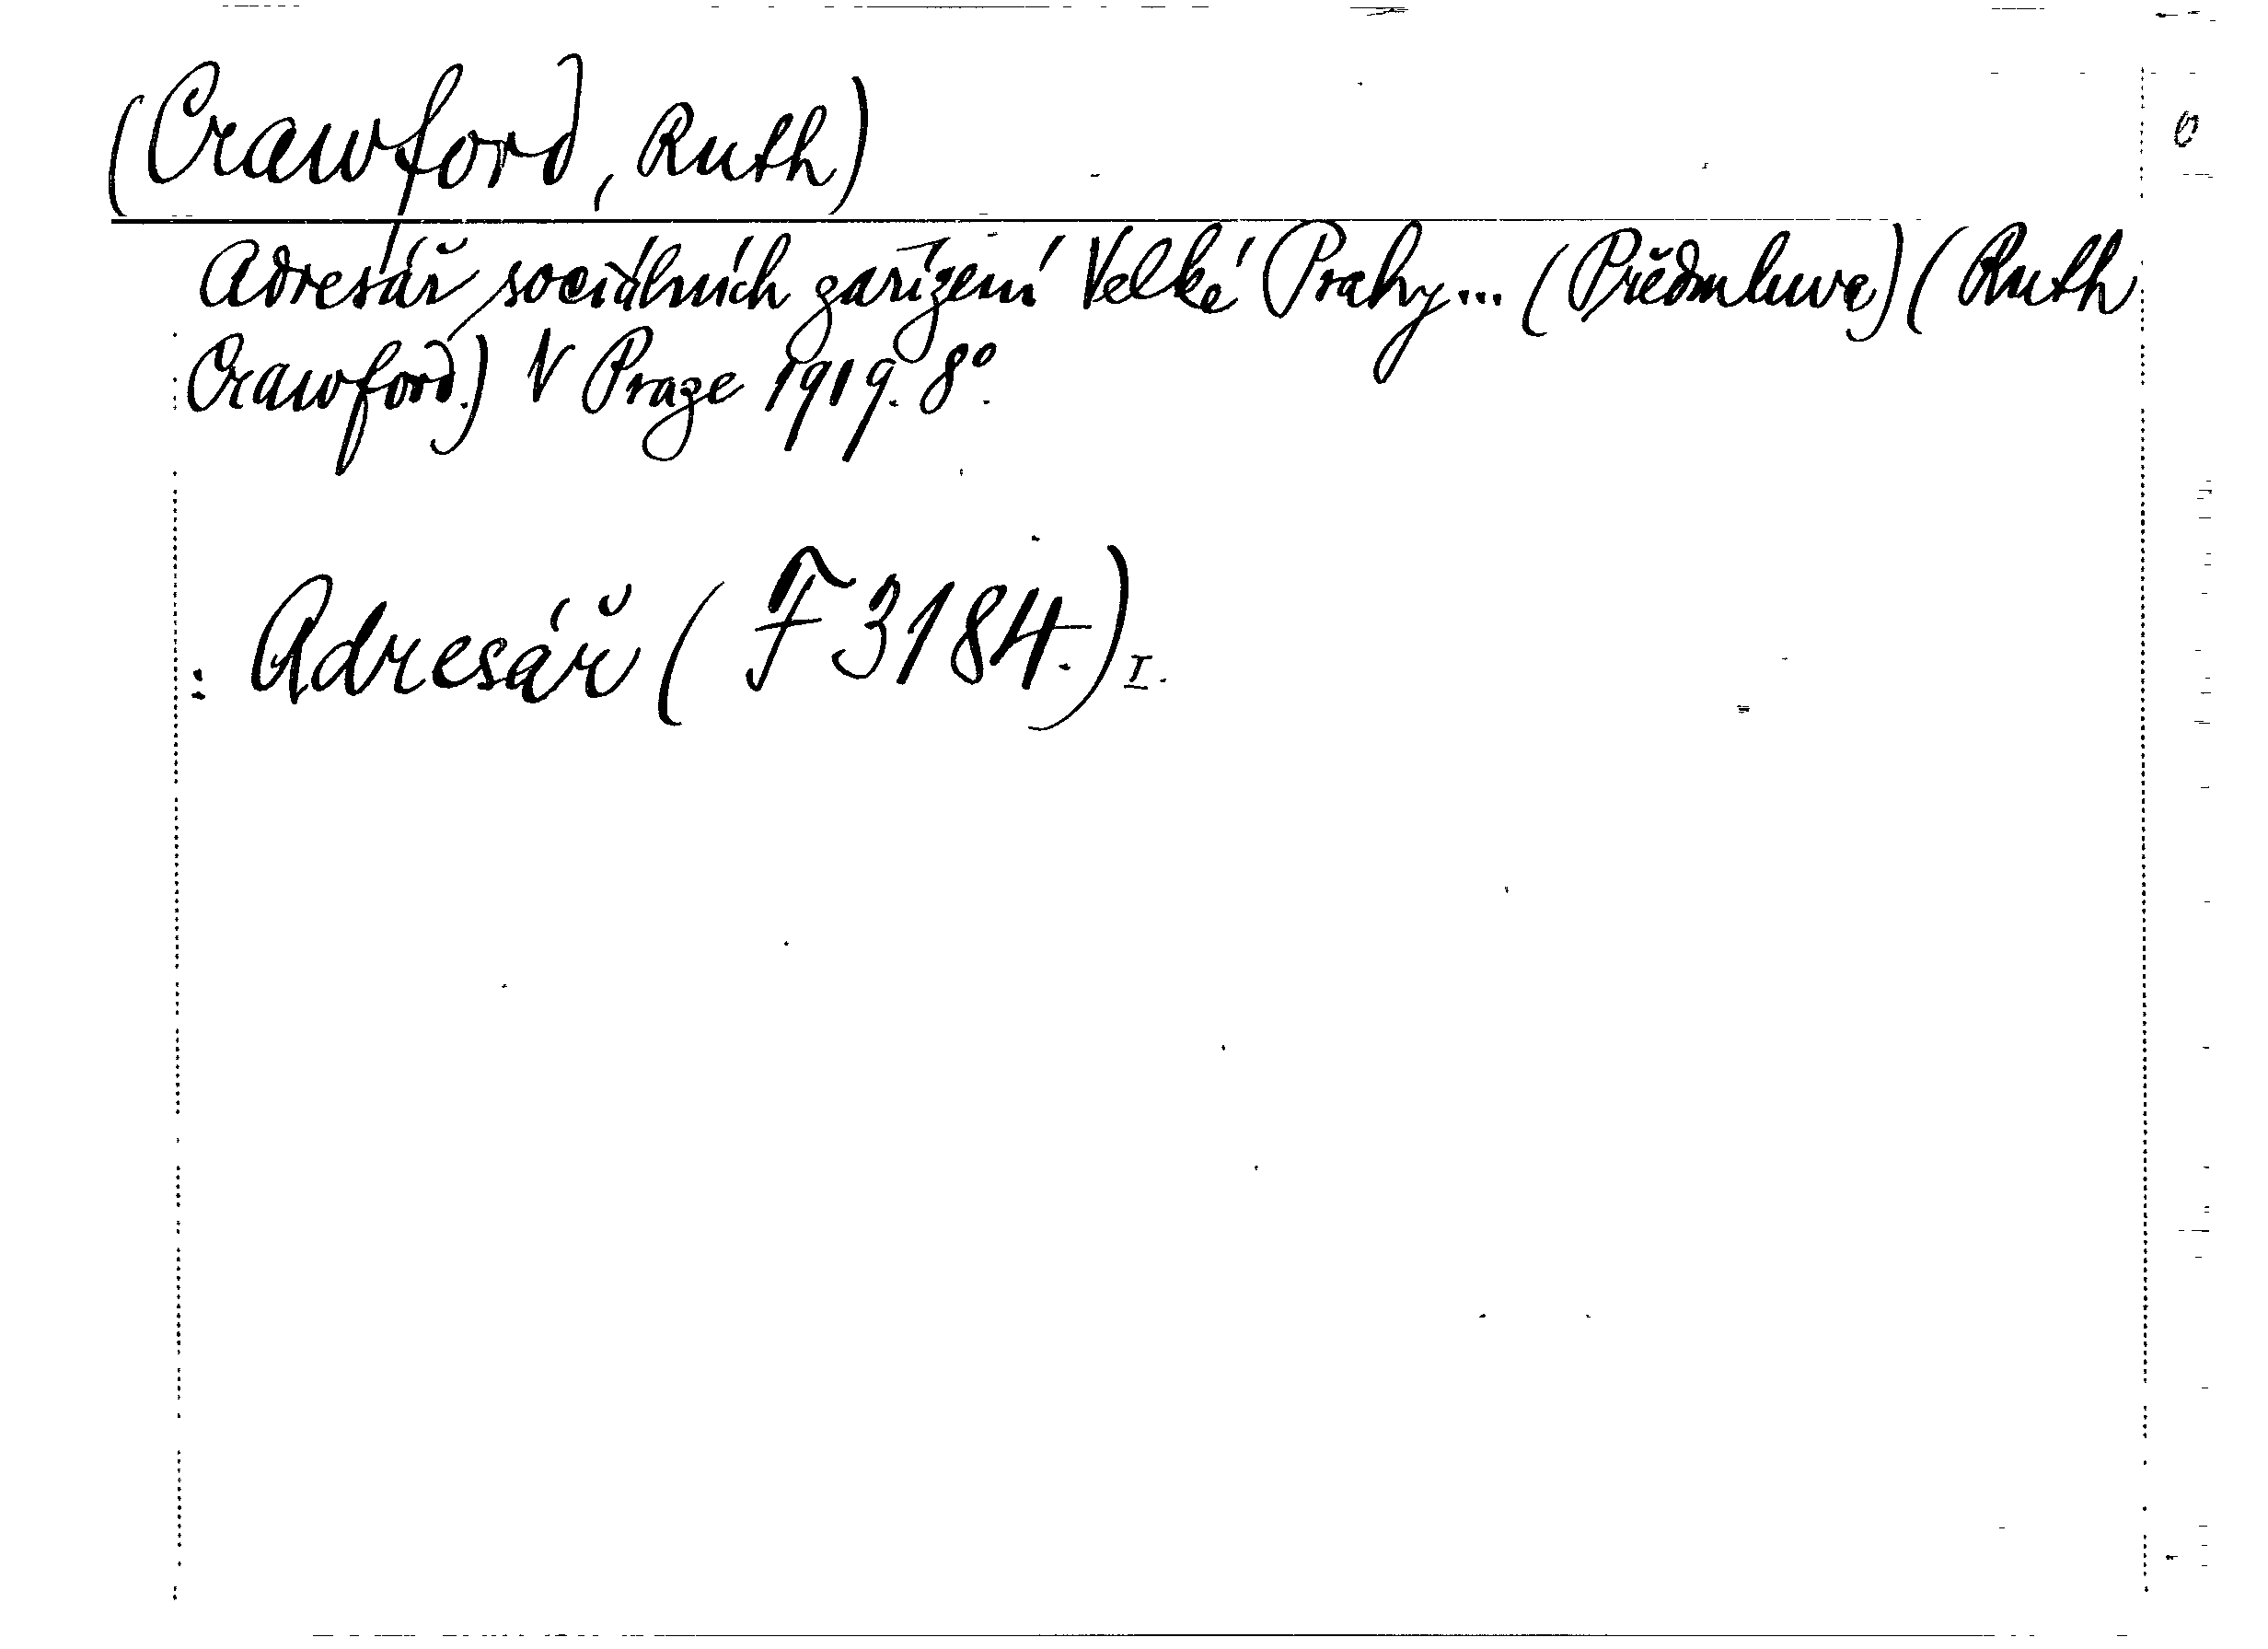 (Crawford, Ruth)
Adresář sociálních zařízení Velké Prahy... (Předmluva) (Ruth
Crawford.) V Praze 1919. 8°.
: Adresář (F 3184.) I.